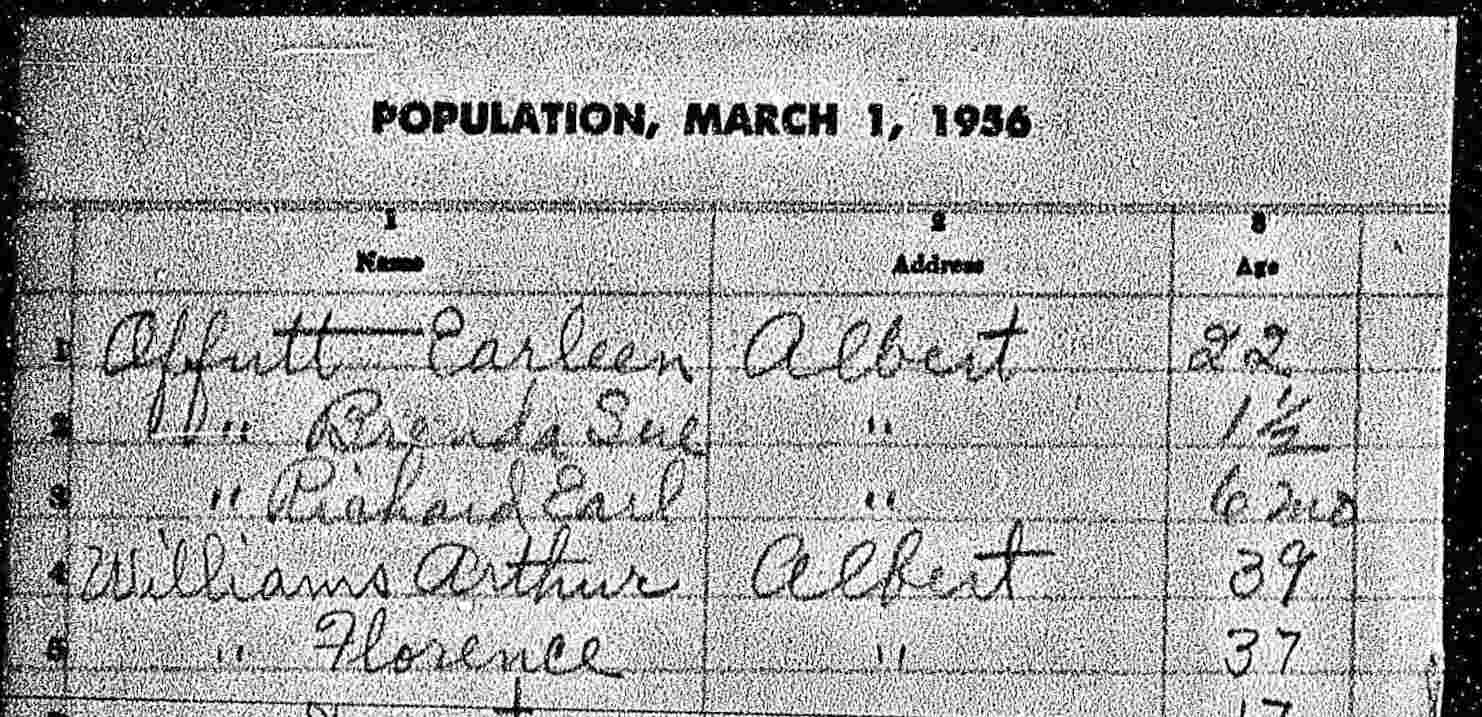 POPULATION, MARCH 1, 1956
1 2 3
Name Address Age
1 Offutt Earleen Albert 22
2 " Brenda Sue " 1 1/2
3 " Richard Earl " 6 mo
4 Williams Arthur Albert 39
5 " Florence " 37
17